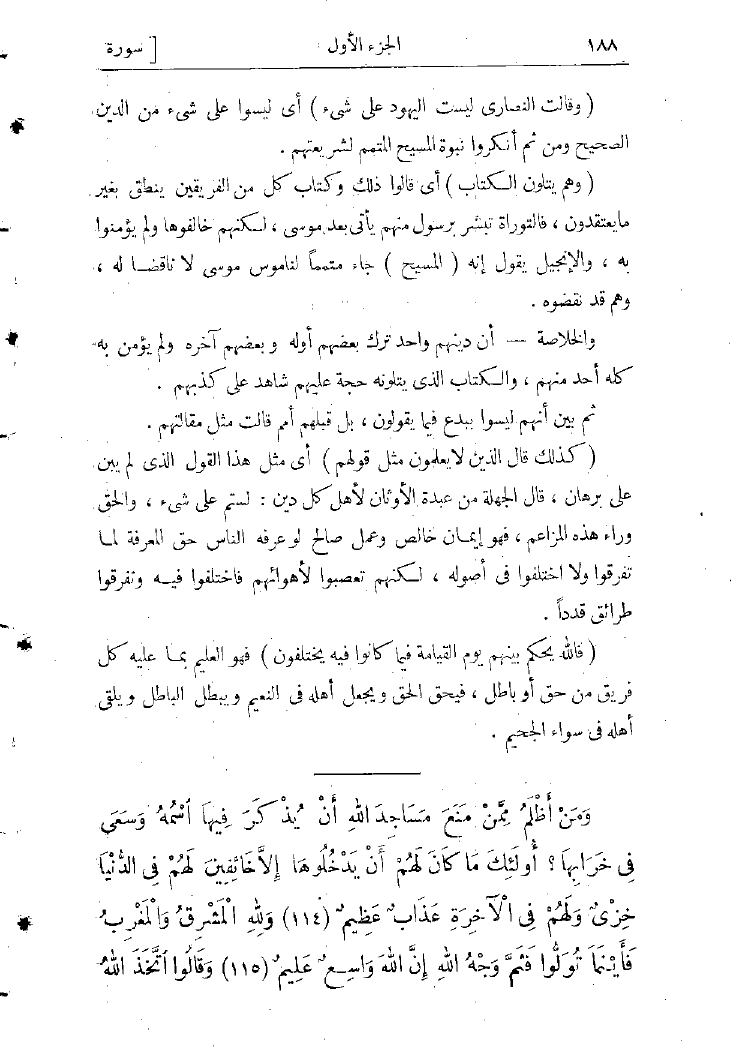 ١٨٨ الجزء الأول [ سورة
( وقالت النصارى ليست اليهود على شىء ) أى ليسوا على شىء من الدين
الصحيح ومن ثم أنكروا نبوة المسيح المتمم لشريعتهم .
( وهم يتلون الكتاب ) أى قالوا ذلك وكتاب كل من الفريقين ينطق بغير
مايعتقدون ، فالتوراة تبشر برسول منهم يأتى بعد موسى ، لكنهم خالفوها ولم يؤمنوا
به ، والإنجيل يقول إنه ( المسيح ) جاء متمما لناموس موسى لا ناقضا له ،
وهم قد نقضوه .
والخلاصة — أن دينهم واحد ترك بعضهم أوله وبعضهم آخره ولم يؤمن به
كله أحد منهم ، والكتاب الذى يتلونه حجة عليهم شاهد على كذبهم .
ثم بين أنهم ليسوا ببدع فيما يقولون ، بل قبلهم أمم قالت مثل مقالتهم .
( كذلك قال الذين لايعلمون مثل قولهم ) أى مثل هذا القول الذى لم يبن
على برهان ، قال الجهلة من عبدة الأوثان لأهل كل دين : لستم على شىء ، والحق
وراء هذه المزاعم ، فهو إيمان خالص وعمل صالح لو عرفه الناس حق المعرفة لما
تفرقوا ولا اختلفوا فى أصوله ، لكنهم تعصبوا لأهوائهم فاختلفوا فيه وتفرقوا
طرائق قددا .
( فالله يحكم بينهم يوم القيامة فيما كانوا فيه يختلفون ) فهو العليم بما عليه كل
فريق من حق أو باطل ، فيحق الحق ويجعل أهله فى النعيم ويبطل الباطل ويلقى
أهله فى سواء الجحيم .
وَمَنْ أَظْلَمُ مِمَّنْ مَنَعَ مَسَاجِدَ اللهِ أَنْ يُذْكَرَ فِيهَا اسْمُهُ وَسَعَى
فِى خَرَابِهَا؟ أُولَئِكَ مَا كَانَ لَهُمْ أَنْ يَدْخُلُوهَا إِلاَّ خَائِفِينَ لَهُمْ فِى الدُّنْيَا
خِزْىٌ وَلَهُمْ فِى الْآخِرَةِ عَذَابٌ عَظِيمٌ (١١٤) وَلِلهِ الْمَشْرِقُ وَالْمَغْرِبُ
فَأَيْنَمَا تُوَلُّوا فَثَمَّ وَجْهُ اللهِ إِنَّ اللهَ وَاسِعٌ عَلِيمٌ (١١٥) وَقَالُوا اتَّخَذَ اللهُ